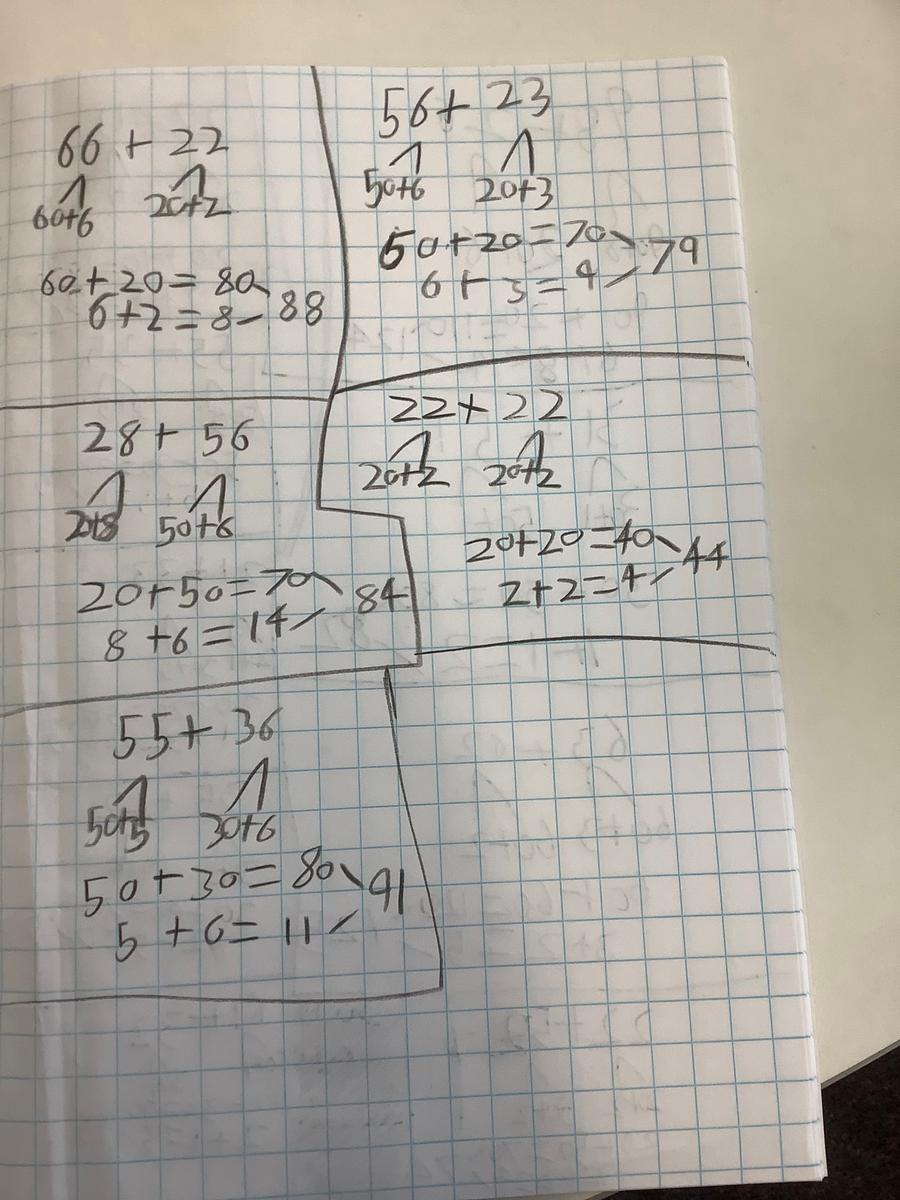 66 + 22
60+6 20+2
60+20=80
6+2=8 88
56+ 23
50+6 20+3
50+20=70
6+3=9 79
28+ 56
20+8 50+6
20+50=70
8+6=14 84
22+22
20+2 20+2
20+20=40
2+2=4 44
55+ 36
50+5 30+6
50+30=80
5+6=11 91